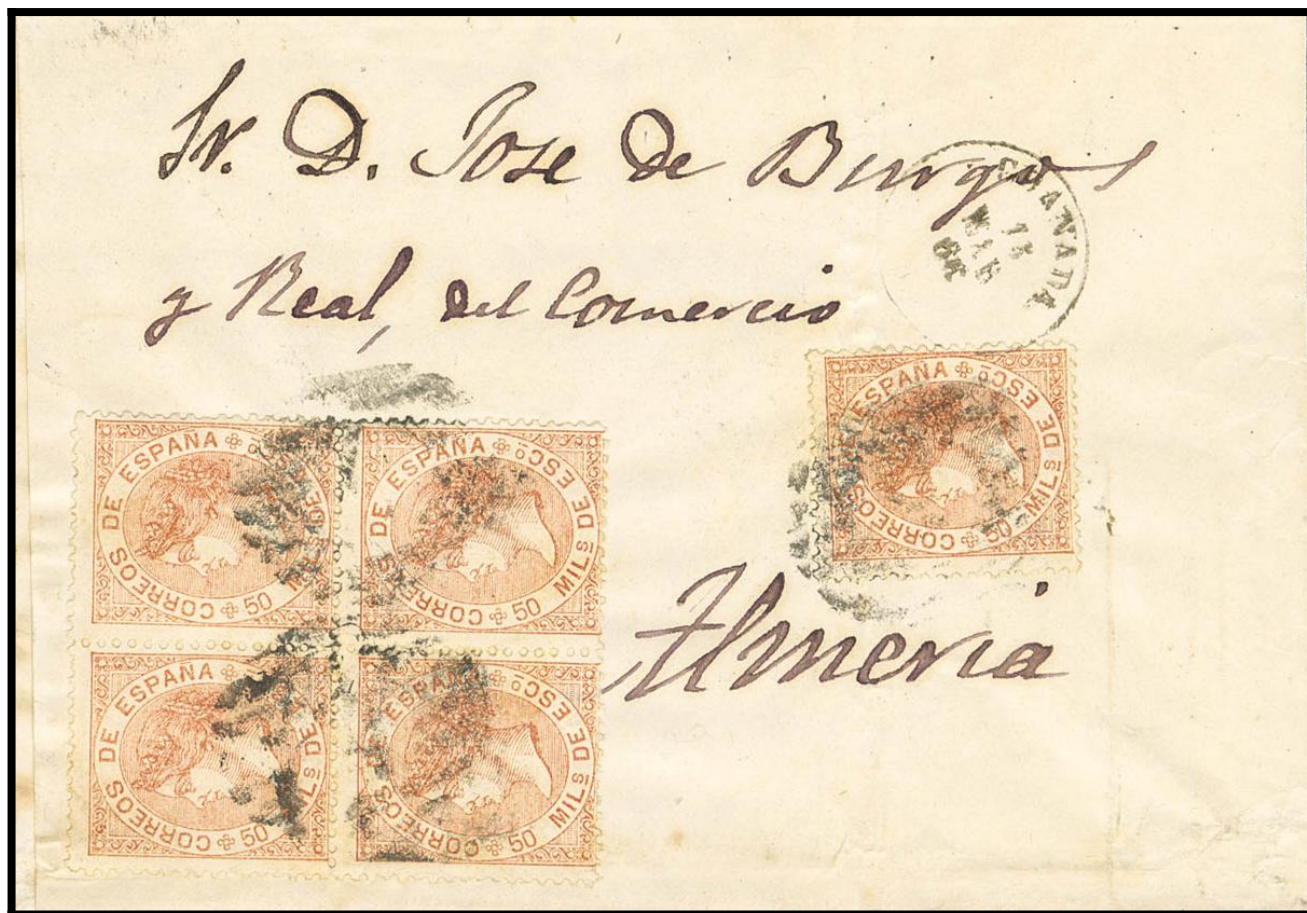 Sr. D. Jose de Burgos
y Real, del Comercio
Almeria
GRANADA
MAR
CORREOS DE ESPAÑA 50 MILS DE
CORREOS DE ESPAÑA 50 MILS DE ESCO
CORREOS DE ESPAÑA 50 MILS DE
CORREOS DE ESPAÑA 50 MILS DE ESCO
CORREOS DE ESPAÑA 50 MILS DE ESCO